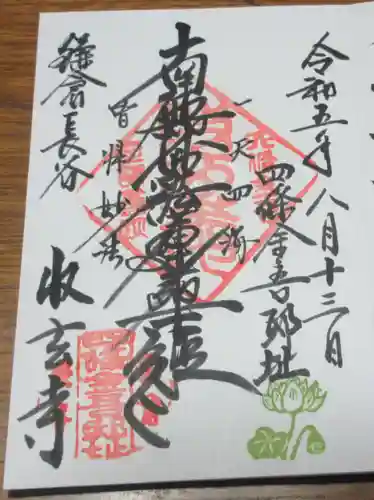 令和五年八月十三日
四條金吾邸址
一天四海
南無妙法蓮華経
皆帰妙法
鎌倉長谷
収玄寺